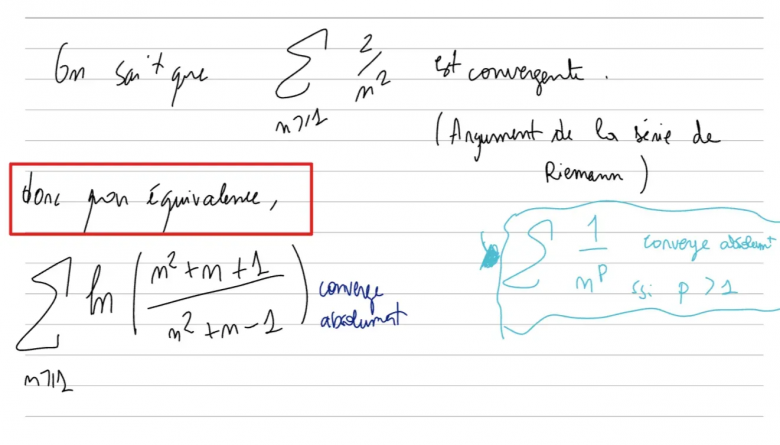 On sait que ∑ n⩾1 2/n² est convergente.
(Argument de la série de
Riemann)
donc par équivalence,
∑ n⩾1 ln((n²+n+1)/(n²+n-1)) converge
absolument
∑ 1/n^p converge absolument
ssi p > 1